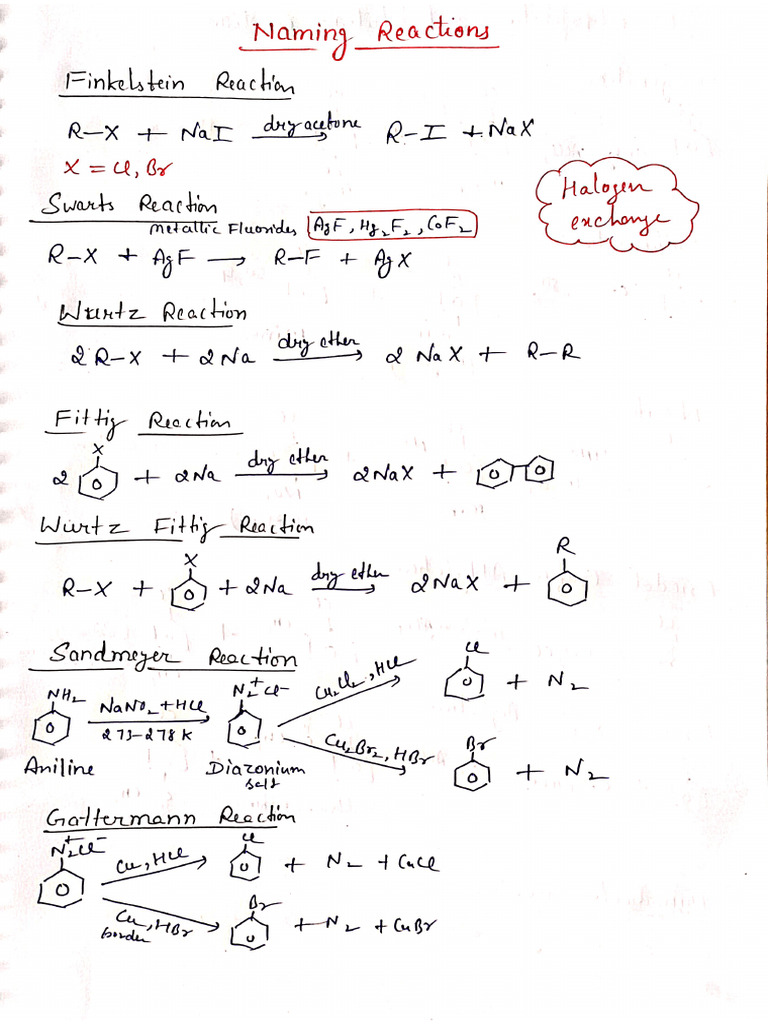 Naming Reactions
Finkelstein Reaction
R-X + NaI dry acetone → R-I + NaX
X = Cl, Br
Halogen
exchange
Swarts Reaction
Metallic Fluorides AgF, Hg2F2, CoF2
R-X + AgF → R-F + AgX
Wurtz Reaction
2R-X + 2Na dry ether → 2NaX + R-R
Fittig Reaction
X
2 + 2Na dry ether → 2NaX +
Wurtz Fittig Reaction
X R
R-X + + 2Na dry ether → 2NaX +
Sandmeyer Reaction
Cl
NH2 NaNO2+HCl → N2+Cl- Cu2Cl2, HCl → + N2
273-278K
Cu2Br2, HBr → Br + N2
Aniline Diazonium
salt
Gattermann Reaction
N2+Cl- Cl
Cu, HCl → + N2 + CuCl
Br
Cu, HBr → + N2 + CuBr
powder